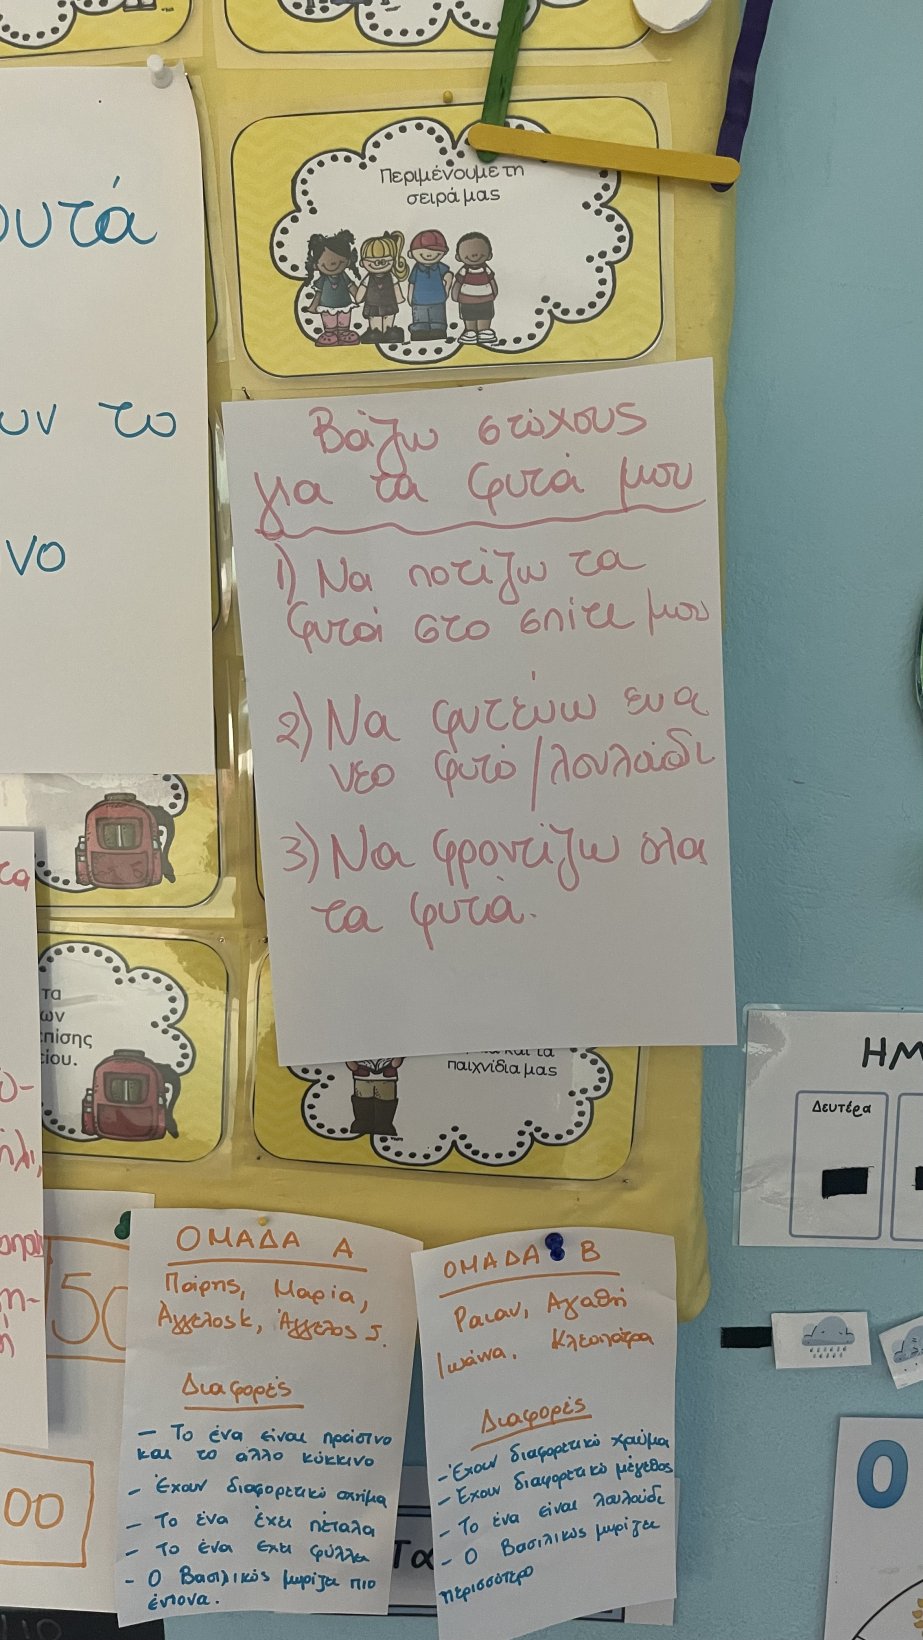 Περιμένουμε τη
σειρά μας
υτά
ουν το
νο
Βάζω στόχους
για τα φυτά μου
1) Να ποτίζω τα
φυτά στο σπίτι μου
2) Να φυτεύω ενα
νεο φυτό/λουλούδι
3) Να φροντίζω ολα
τα φυτά.
τα
τα
ων
πίσης
είου.
και τα
παιχνίδια μας
ΗΜ
Δευτέρα
ΟΜΑΔΑ Α
Πάρης, Μαρία,
Άγγελος Κ, Άγγελος Σ.
Διαφορές
- Το ένα είναι πράσινο
και το αλλο κόκκινο
- Έχουν διαφορετικό σχήμα
- Το ένα έχει πέταλα
- Το ένα εχει φύλλα
- Ο Βασιλικός μυρίζει πιο
έντονα.
ΟΜΑΔΑ Β
Ραιαν, Αγαθή
Ιωάννα, Κλεοπάτρα
Διαφορές
- Έχουν διαφορετικό χρώμα
- Έχουν διαφορετικό μέγεθος
- Το ένα είναι λουλούδι
- Ο Βασιλικός μυρίζει
περισσότερο
50
00
Τα
Ο